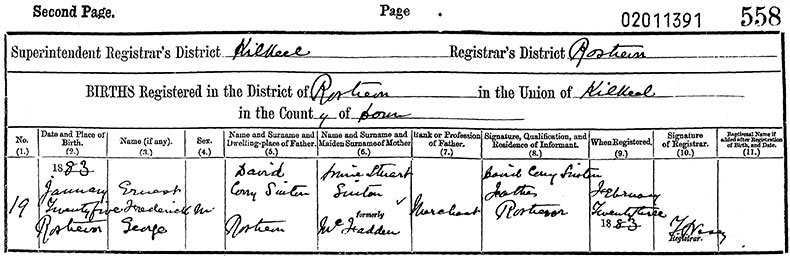 Second Page. Page 02011391 558
Superintendent Registrar's District Kilkeel Registrar's District Rostrevor
BIRTHS Registered in the District of Rostrevor in the Union of Kilkeel
in the County of Down
No. Date and Place of Birth. Name (if any). Sex. Name and Surname and Dwelling-place of Father. Name and Surname and Maiden Surname of Mother Rank or Profession of Father. Signature, Qualification, and Residence of Informant. When Registered. Signature of Registrar. Baptismal Name if added after Registration of Birth, and Date.
(1.) (2.) (3.) (4.) (5.) (6.) (7.) (8.) (9.) (10.) (11.)
19
1883
January
Twentyfive
Rostrevor
Ernest
Frederick
George
M
David
Corry Sinton
Rostrevor
Annie Stuart
Sinton
formerly
McFadden
Merchant
David Corry Sinton
father
Rostrevor
February
Twentythree
1883
Registrar.